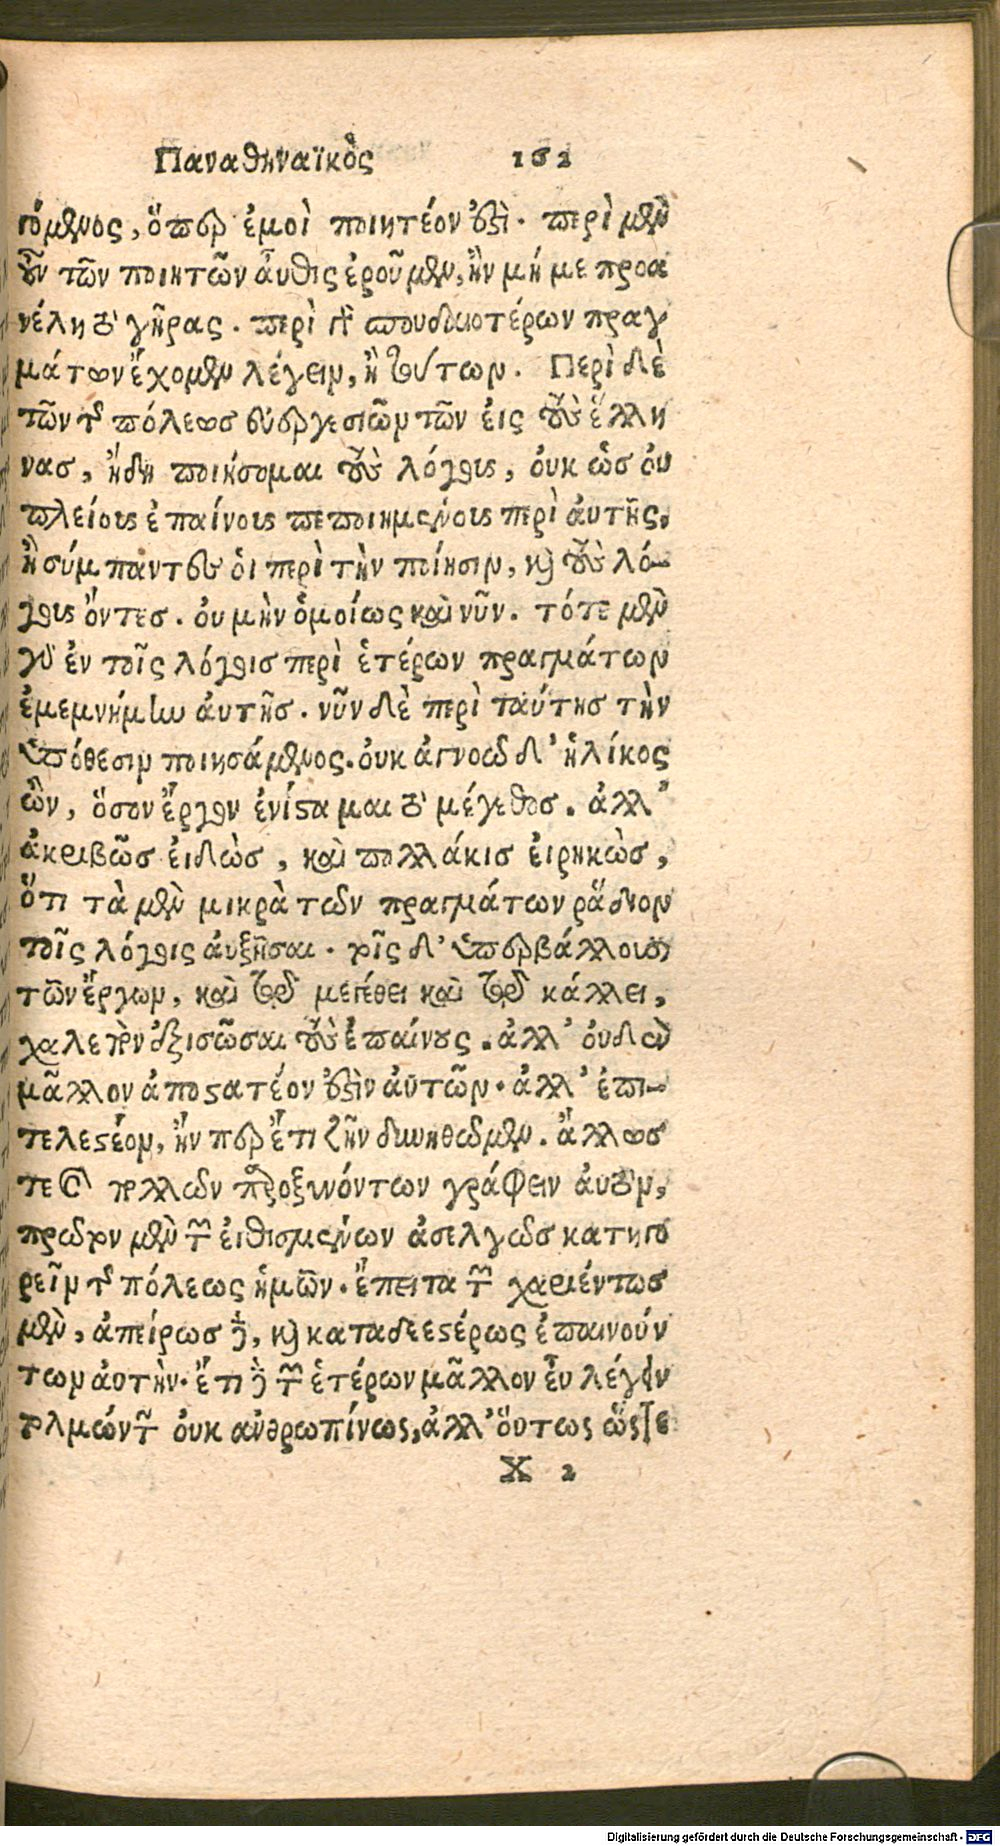 Παναθηναϊκὸς 162
γόμενος, ὅπερ ἐμοὶ ποιητέον ἐστὶ. περὶ μὲν
οὖν τῶν ποιητῶν αὖθις ἐροῦμεν, ἢν μή με προα
νέλῃ τὸ γῆρας. περὶ σπουδαιοτέρων πραγ
μάτων ἔχομεν λέγειν, ἢ τούτων. Περὶ δὲ
τῶν τῆς πόλεως εὐεργεσιῶν τῶν εἰς τοὺς ἕλλη
νας, ἤδη ποιήσομαι τοὺς λόγους, οὐκ ὡς οὐ
πλείους ἐπαίνους πεποιημένους περὶ ἀυτῆς.
ἢ σύμπαντες ὁι περὶ τὴν ποίησιν, καὶ τοὺς λό-
γους ὄντες. ου μὴν ὁμοίως καὶ νῦν. τότε μὲν
γὰρ ἐν τοῖς λόγοις περὶ ἑτέρων πραγμάτων
ἐμεμνήμην ἀυτῆς. νῦν δὲ περὶ ταύτης τὴν
ὑπόθεσιν ποιησάμενος. οὐκ ἀγνοῶ δ' ἡλίκος
ὢν, ὅσον ἔργον ἐνίσταμαι τὸ μέγεθος. ἀλλ'
ἀκριβῶς εἰδὼς, καὶ πολλάκις εἰρηκὼς,
ὅτι τὰ μὲν μικρὰ τῶν πραγμάτων ῥᾴδιον
τοῖς λόγοις ἀυξῆσαι. τοῖς δ' ὑπερβάλλουσι
τῶν ἔργων, καὶ τῷ μεγέθει καὶ τῷ κάλλει,
χαλεπὸν ἐξισῶσαι τοὺς ἐπαίνους. ἀλλ' οὐδὲν
μᾶλλον ἀποστατέον ἐστὶν ἀυτῶν. ἀλλ' ἐπι-
τελεστέον, ἤν περ ἔτι ζῆν δυνηθῶμεν. ἄλλως
τε καὶ πολλῶν παροξυνόντων γράφειν ἀυτὸν,
πρῶτον μὲν τῶν εἰθισμένων ἀσελγῶς κατηγο
ρεῖν τῆς πόλεως ἡμῶν. ἔπειτα τῶν χαριέντως
μὲν, ἀπείρως δὲ, καὶ καταδεεστέρως ἐπαινούν
των ἀυτὴν. ἔτι δὲ τῶν ἑτέρων μᾶλλον εὖ λέγειν
τολμώντων οὐκ ἀνθρωπίνως, ἀλλ' ὅυτως ὥστε
X 2
Digitalisierung gefördert durch die Deutsche Forschungsgemeinschaft - DFG